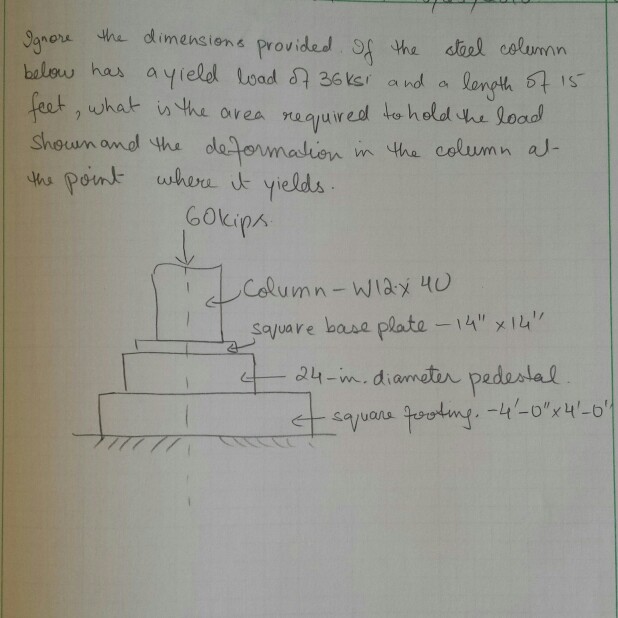 Ignore the dimensions provided. If the steel column
below has a yield load of 36ksi and a length of 15
feet, what is the area required to hold the load
shown and the deformation in the column at
the point where it yields.
60kips
Column - W12x40
square base plate - 14" x 14"
24-in. diameter pedestal.
square footing. - 4'-0" x 4'-0"